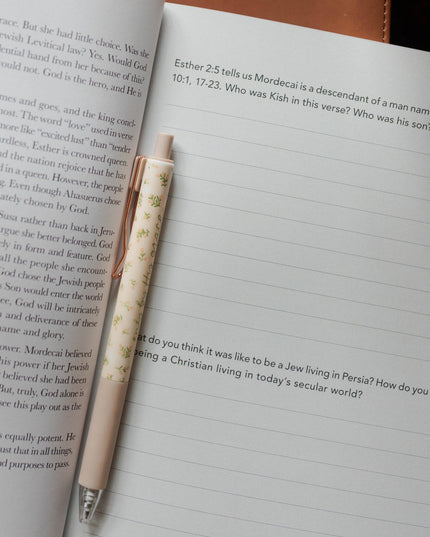 race. But she had little choice. Was she
ewish Levitical law? Yes. Would God
dential hand from her because of this?
would not. God is the hero, and He is
mes and goes, and the king concl-
most. The word “love” used in verse
more like “excited lust” than “tender
ardless, Esther is crowned queen
d the nation rejoice that he has
d in a queen. However, the people
g. Even though Ahasuerus chose
ately chosen by God.
Susa rather than back in Jeru-
rgue she better belonged. God
ely in form and feature. God
all the people she encount-
God chose the Jewish people
s Son would enter the world
ee, God will be intricately
n and deliverance of these
name and glory.
ower. Mordecai believed
his power if her Jewish
believed she had been
But, truly, God alone is
see this play out as the
s equally potent. He
ust that in all things,
nd purposes to pass.
Esther 2:5 tells us Mordecai is a descendant of a man nam
10:1, 17-23. Who was Kish in this verse? Who was his son?
at do you think it was like to be a Jew living in Persia? How do you
being a Christian living in today's secular world?